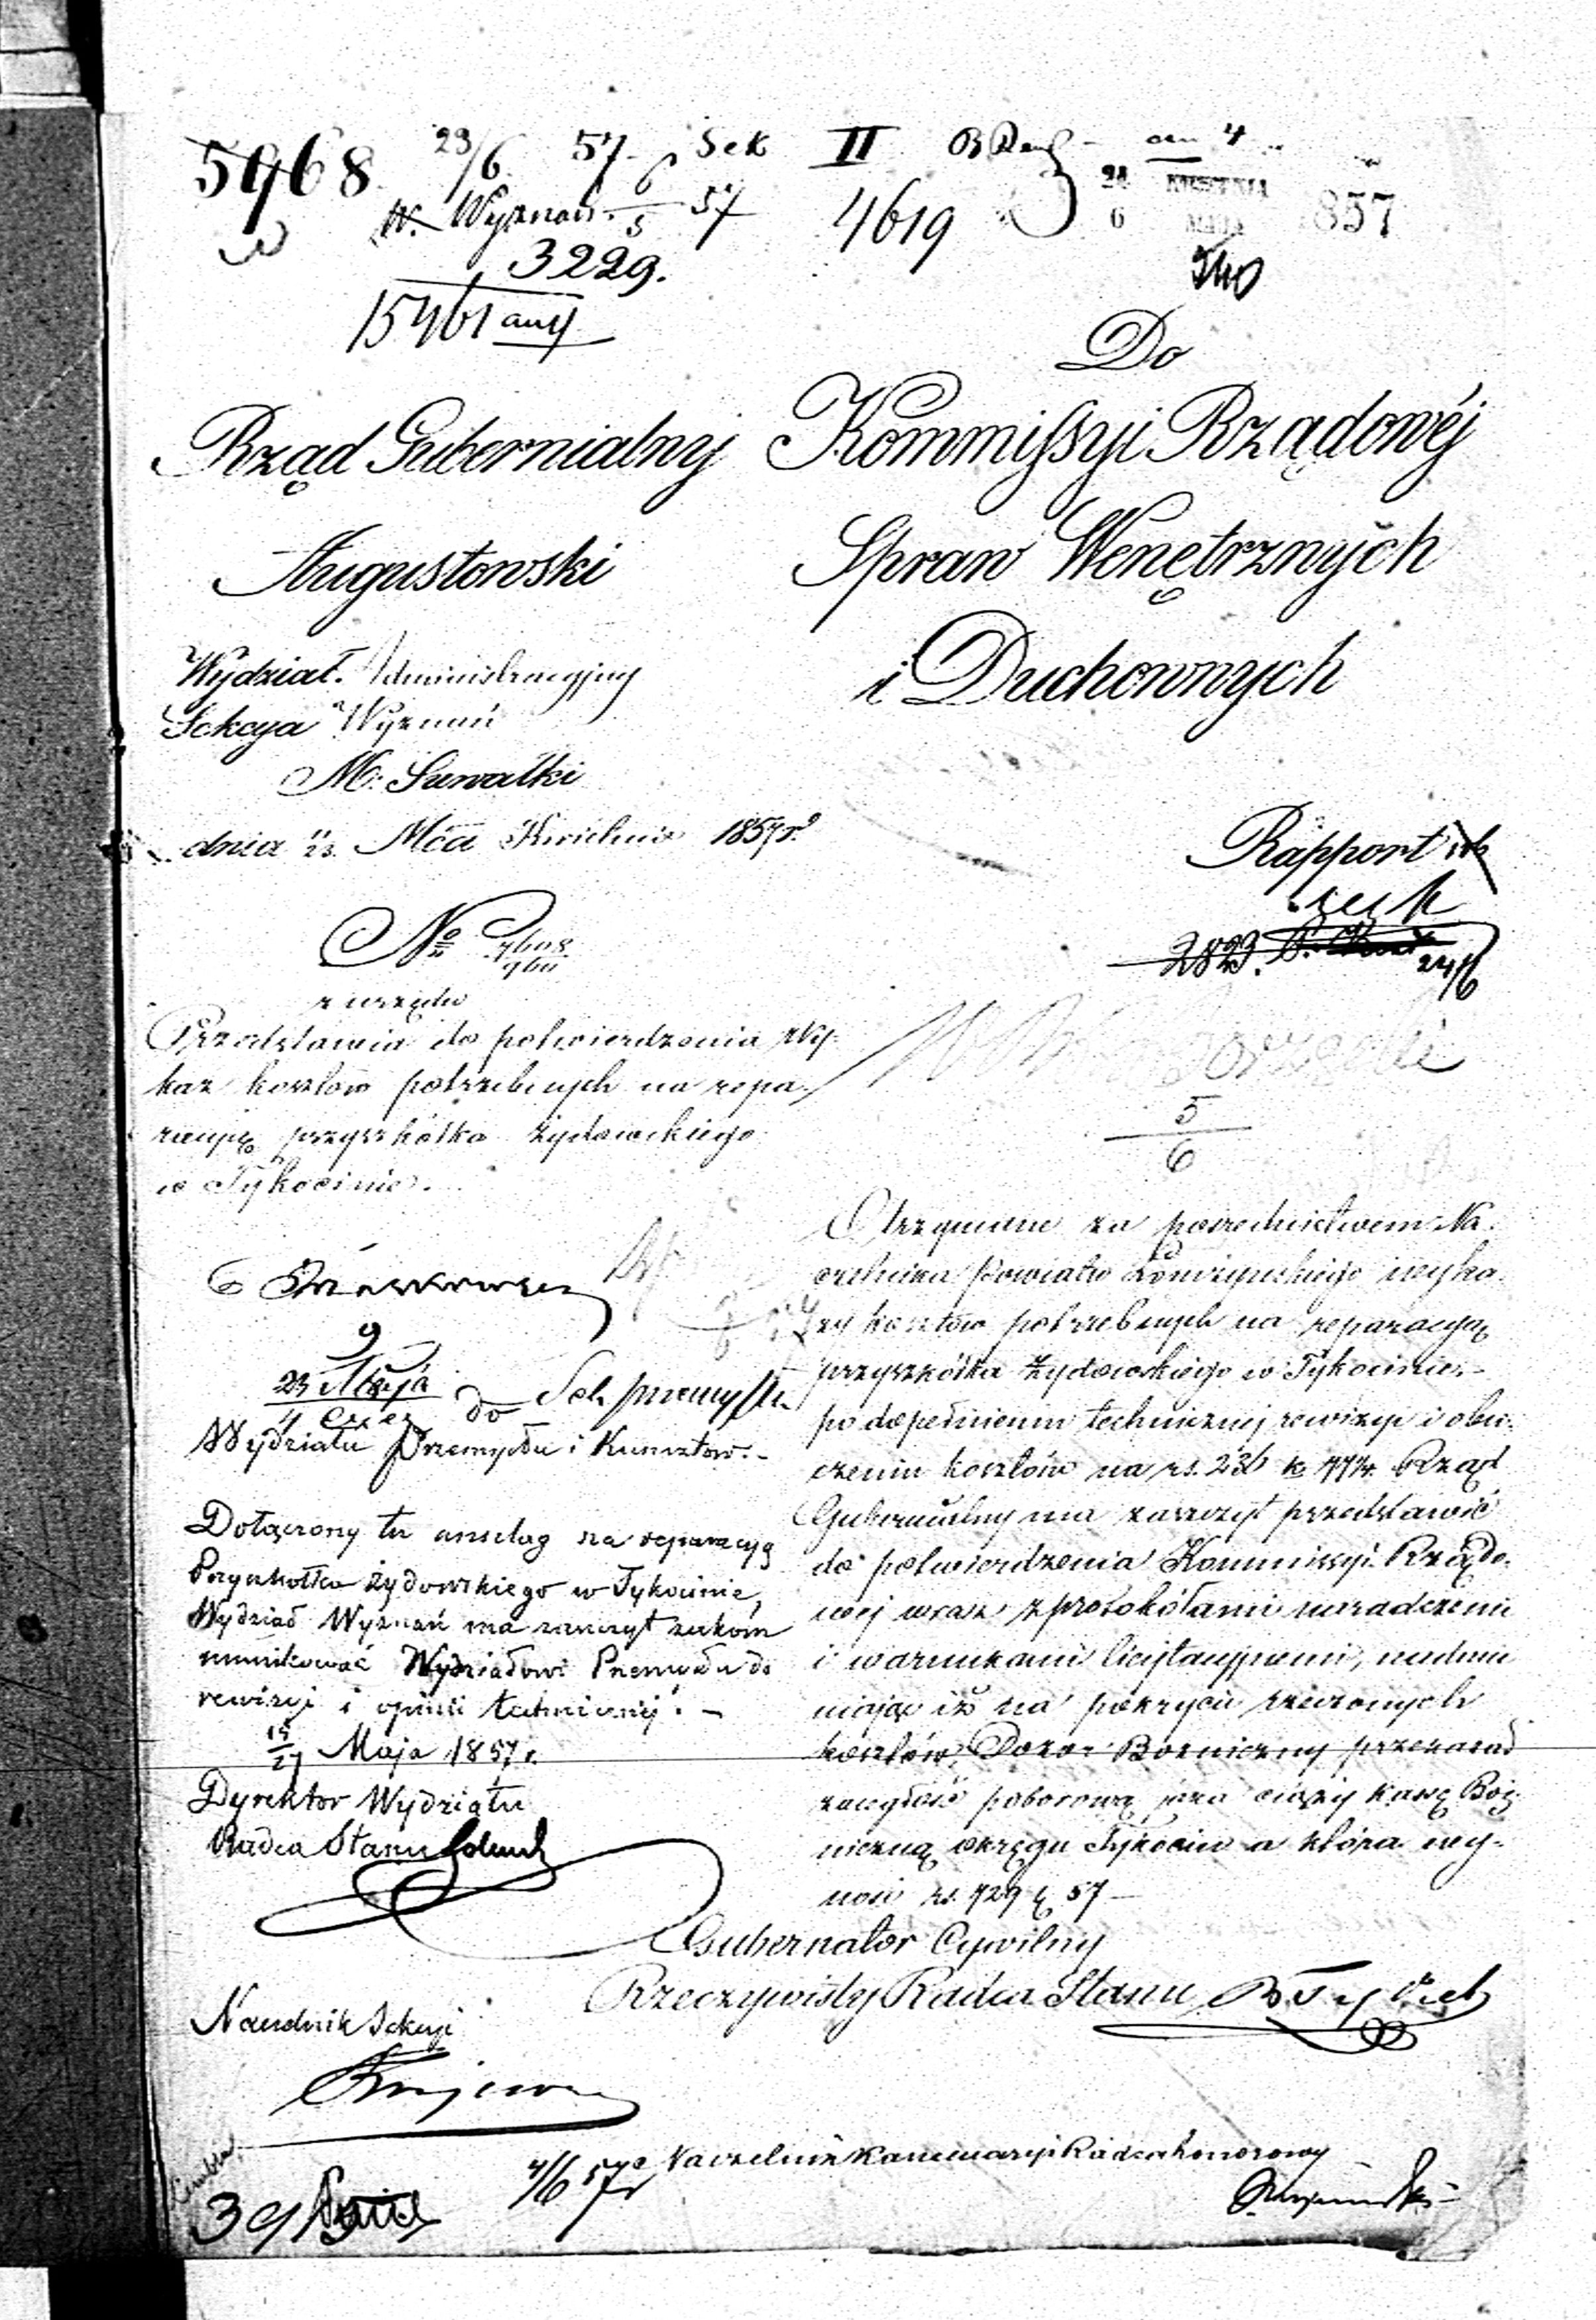 5968 23/6 57 Sek II
W. Wyznań 6/5 57 4619 24 KWIETNIA 6 MAJA 1857
3229.
15461
Do
Rząd Gubernialny
Augustowski
Kommissyi Rządowéj
Spraw Wenętrznych
i Duchownych
Wydział Administracyjny
Sekcya Wyznań
M. Suwałki
dnia 23 Mca Kwietnia 1857 r.
Rapport
2823.
24/6
No
z urzędu
Przedstawia do potwierdzenia wy-
kaz kosztów potrzebnych na repa-
racyję przyszkółka żydowskiego
w Tykocinie.
5
6
Otrzymane za pośrednictwem Na-
czelnika Powiatu Łomżyńskiego wyka-
zy kosztów potrzebnych na reparacyą
przyszkółka żydowskiego w Tykocinie,-
po dopełnieniu technicznej rewizyi i obli-
czeniu kosztów na rs. 236 k. 77½. Rząd
Gubernialny ma zaszczyt przedstawić
do potwierdzenia Kommissyi Rządo-
wej wraz z protokółami naradczemi
i warunkami licytacyjnemi, nadmie
niając iż na pokrycie rzeczonych
kosztów, Dozór Bożniczny przeznacza
zaległość poborową jaka ciąży kassę Boż-
niczną okręgu Tykocin a która wy-
nosi rs. 729 k. 57 –
Gubernator Cywilny
Rzeczywisty Radca Stanu
9
23 Maja
4 Czer do Sek przemysłu
Wydziału Przemysłu i Kunsztów.-
Dołączony tu anszlag na reparacyą
Przyszkołka żydowskiego w Tykocinie,
Wydział Wyznań ma zaszczyt zakom
munikować Wydziałowi Przemysłu do
rewizyi i opinii technicznej. –
15/27 Maja 1857 r.
Dyrektor Wydziału
Radca Stanu
Naczelnik Sekcyi
4/6 57 r
Naczelnik Kancellaryi Radca honorowy